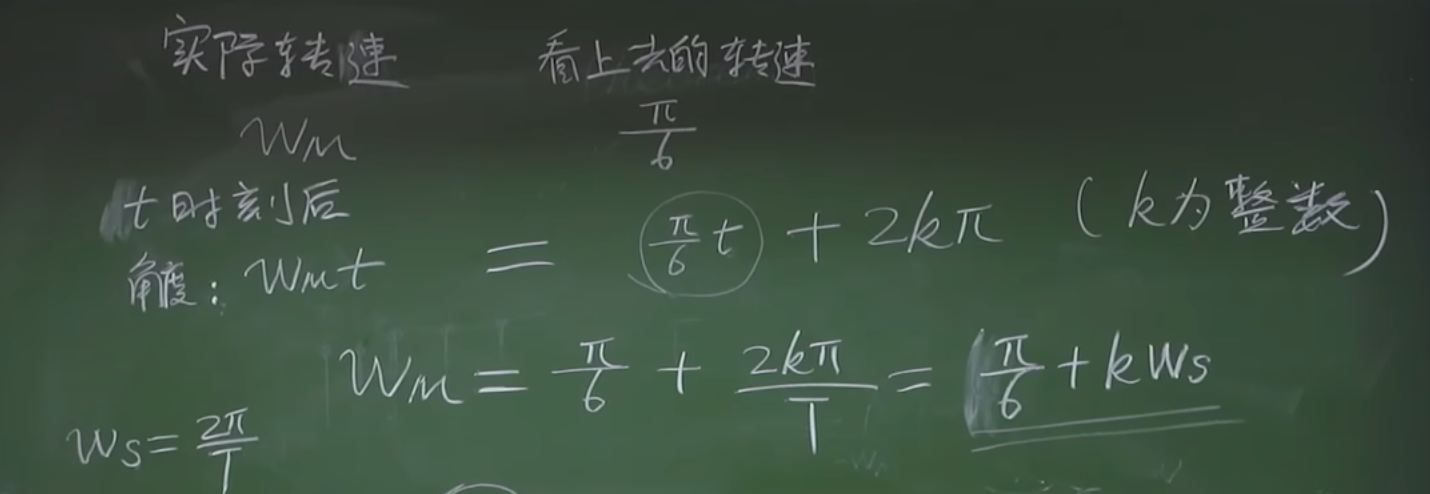 实际转速 看上去的转速
WM π/6
t时刻后
角度: WMt = π/6 t + 2kπ (k为整数)
WM = π/6 + 2kπ/T = π/6 + kWs
Ws = 2π/T